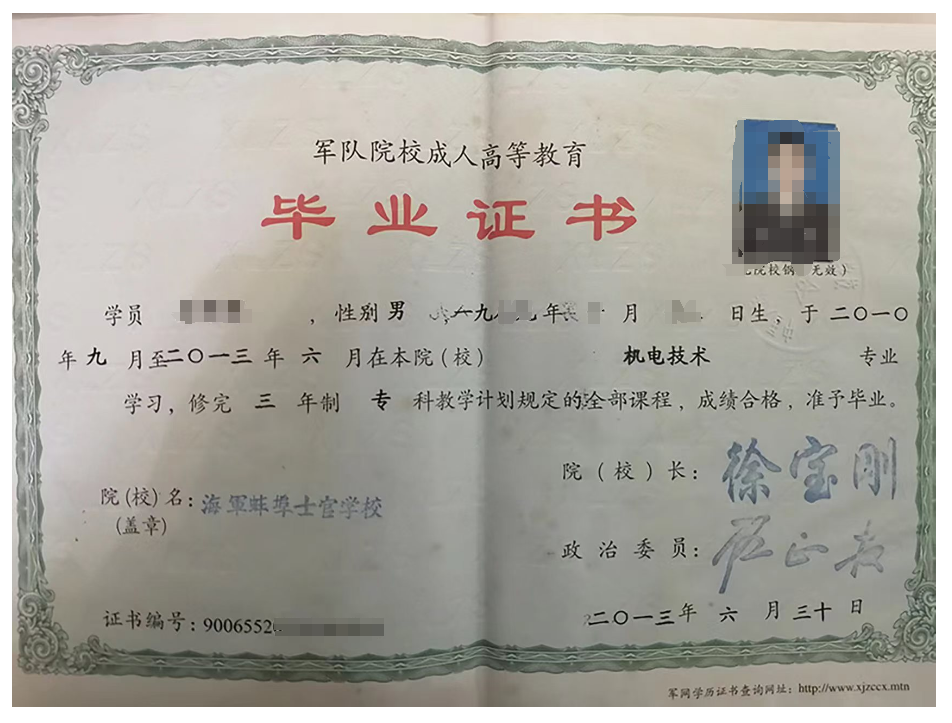 军队院校成人高等教育
毕业证书
院校钢 无效）
学员 ，性别 男 一九 年 月 日生，于二〇一〇
年九月至二〇一三年六月在本院（校） 机电技术 专业
学习，修完三年制 专 科教学计划规定的全部课程，成绩合格，准予毕业。
院（校）长：徐宝刚
院（校）名：海军蚌埠士官学校
（盖章）
政治委员：
二〇一三年六月三十日
证书编号：9006552
军网学历证书查询网址：http://www.xjzccx.mtn